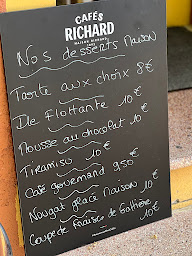 CAFÉS
RICHARD
Nos desserts Maison
Tarte aux choix 8€
Ile flottante 10€
Mousse au chocolat 10€
Tiramisu 10€
Café gourmand 9,50€
Nougat glacé Maison 10€
Coupe de fraises de
10€